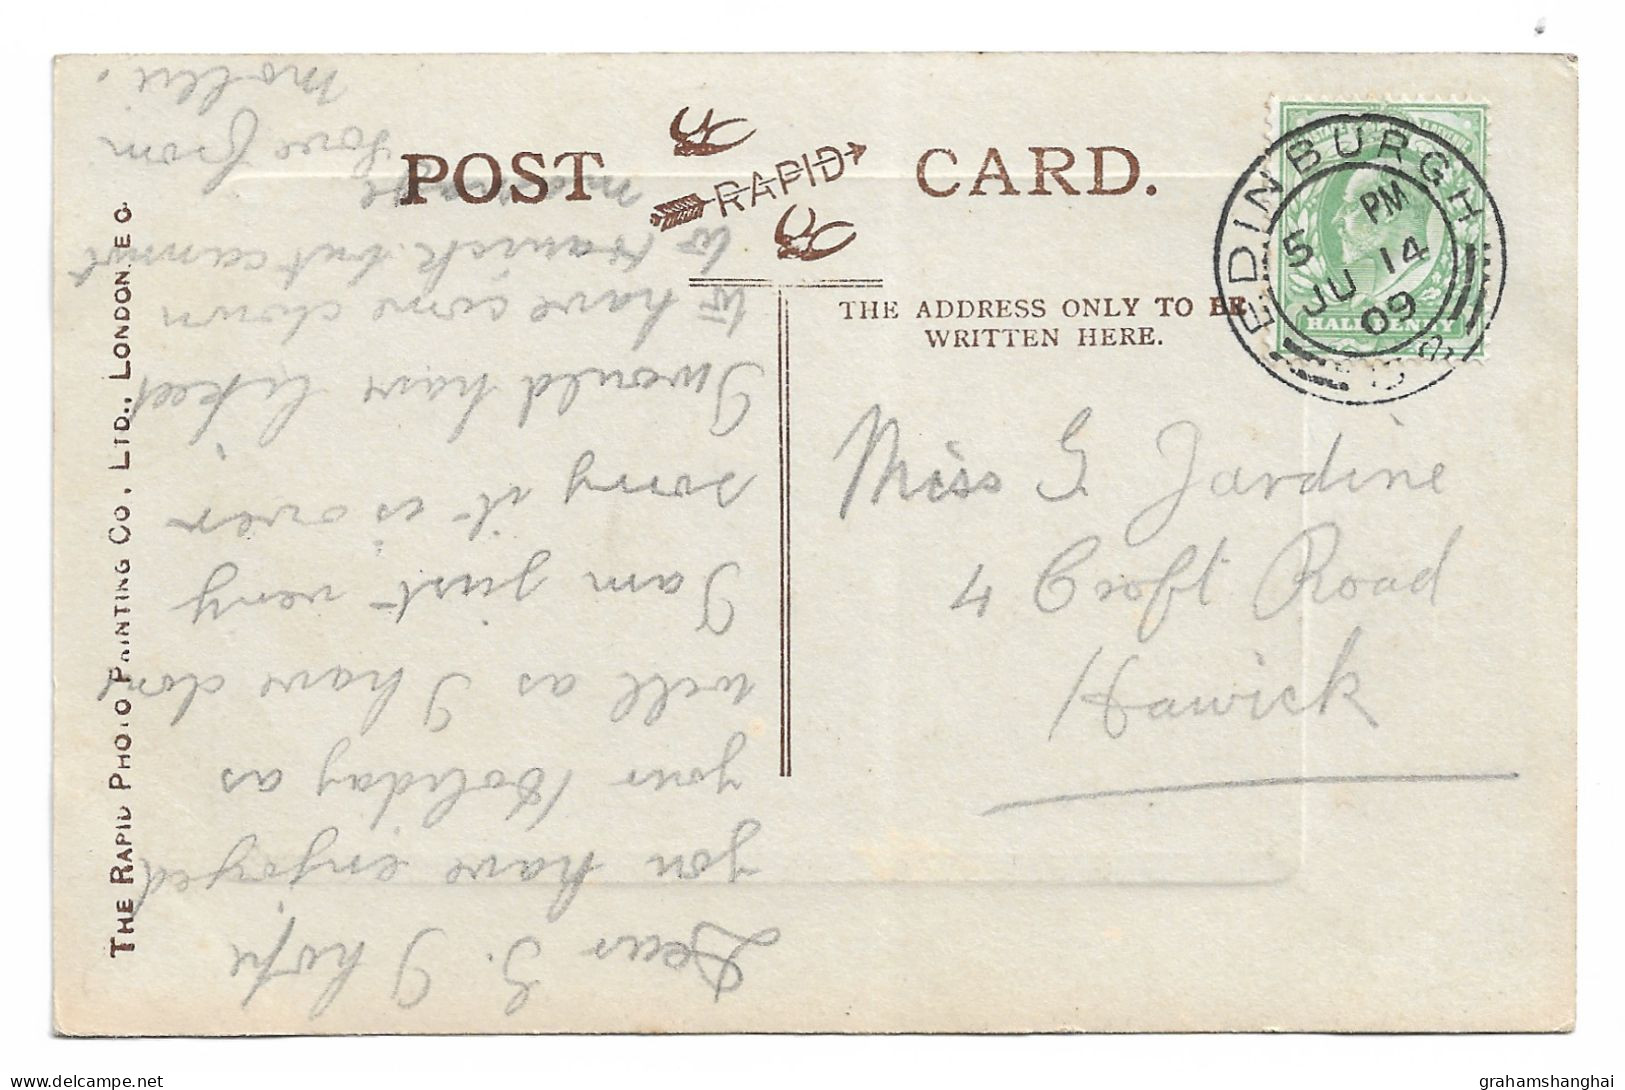 POST CARD.
RAPID
THE ADDRESS ONLY TO BE
WRITTEN HERE.
EDINBURGH
5 PM
JU 14
09
HALFPENNY
Miss G. Jardine
4 Croft Road
Hawick
THE RAPID PHOTO PRINTING CO., LTD., LONDON. E.C.
Dear G. I hope
you have enjoyed
your Holiday as
well as I have done
I am just very
sorry it is over
I would have liked
to have come down
to Hawick but cannot
manage
Love from
Mollie.
grahamshanghai
© delcampe.net